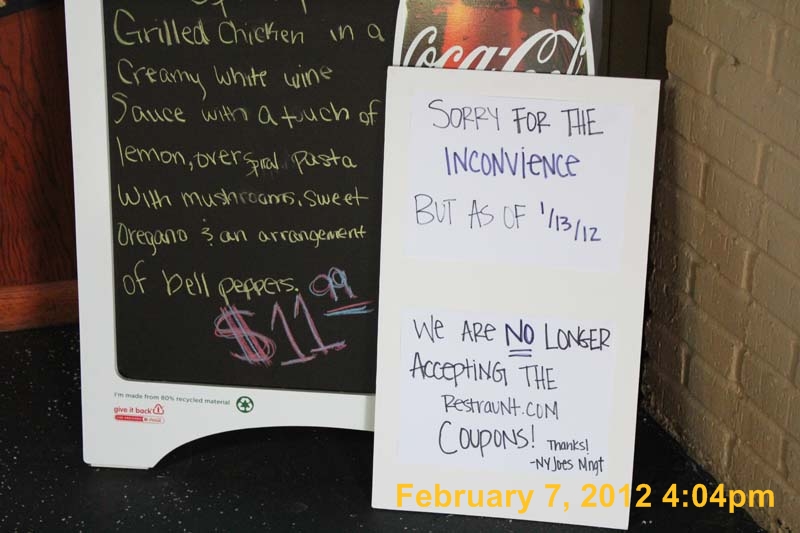 Grilled Chicken in a
Creamy white wine
Sauce with a touch of
lemon, over spiral pasta
with mushrooms, sweet
oregano & an arrangement
of bell peppers.
$11.99
I'm made from 80% recycled material
give it back
Coca-Cola
SORRY FOR THE
INCONVIENCE
BUT AS OF 1/13/12
WE ARE NO LONGER
ACCEPTING THE
RESTRAUNT.COM
COUPONS! Thanks!
-NYJoes Mngt
February 7, 2012 4:04pm